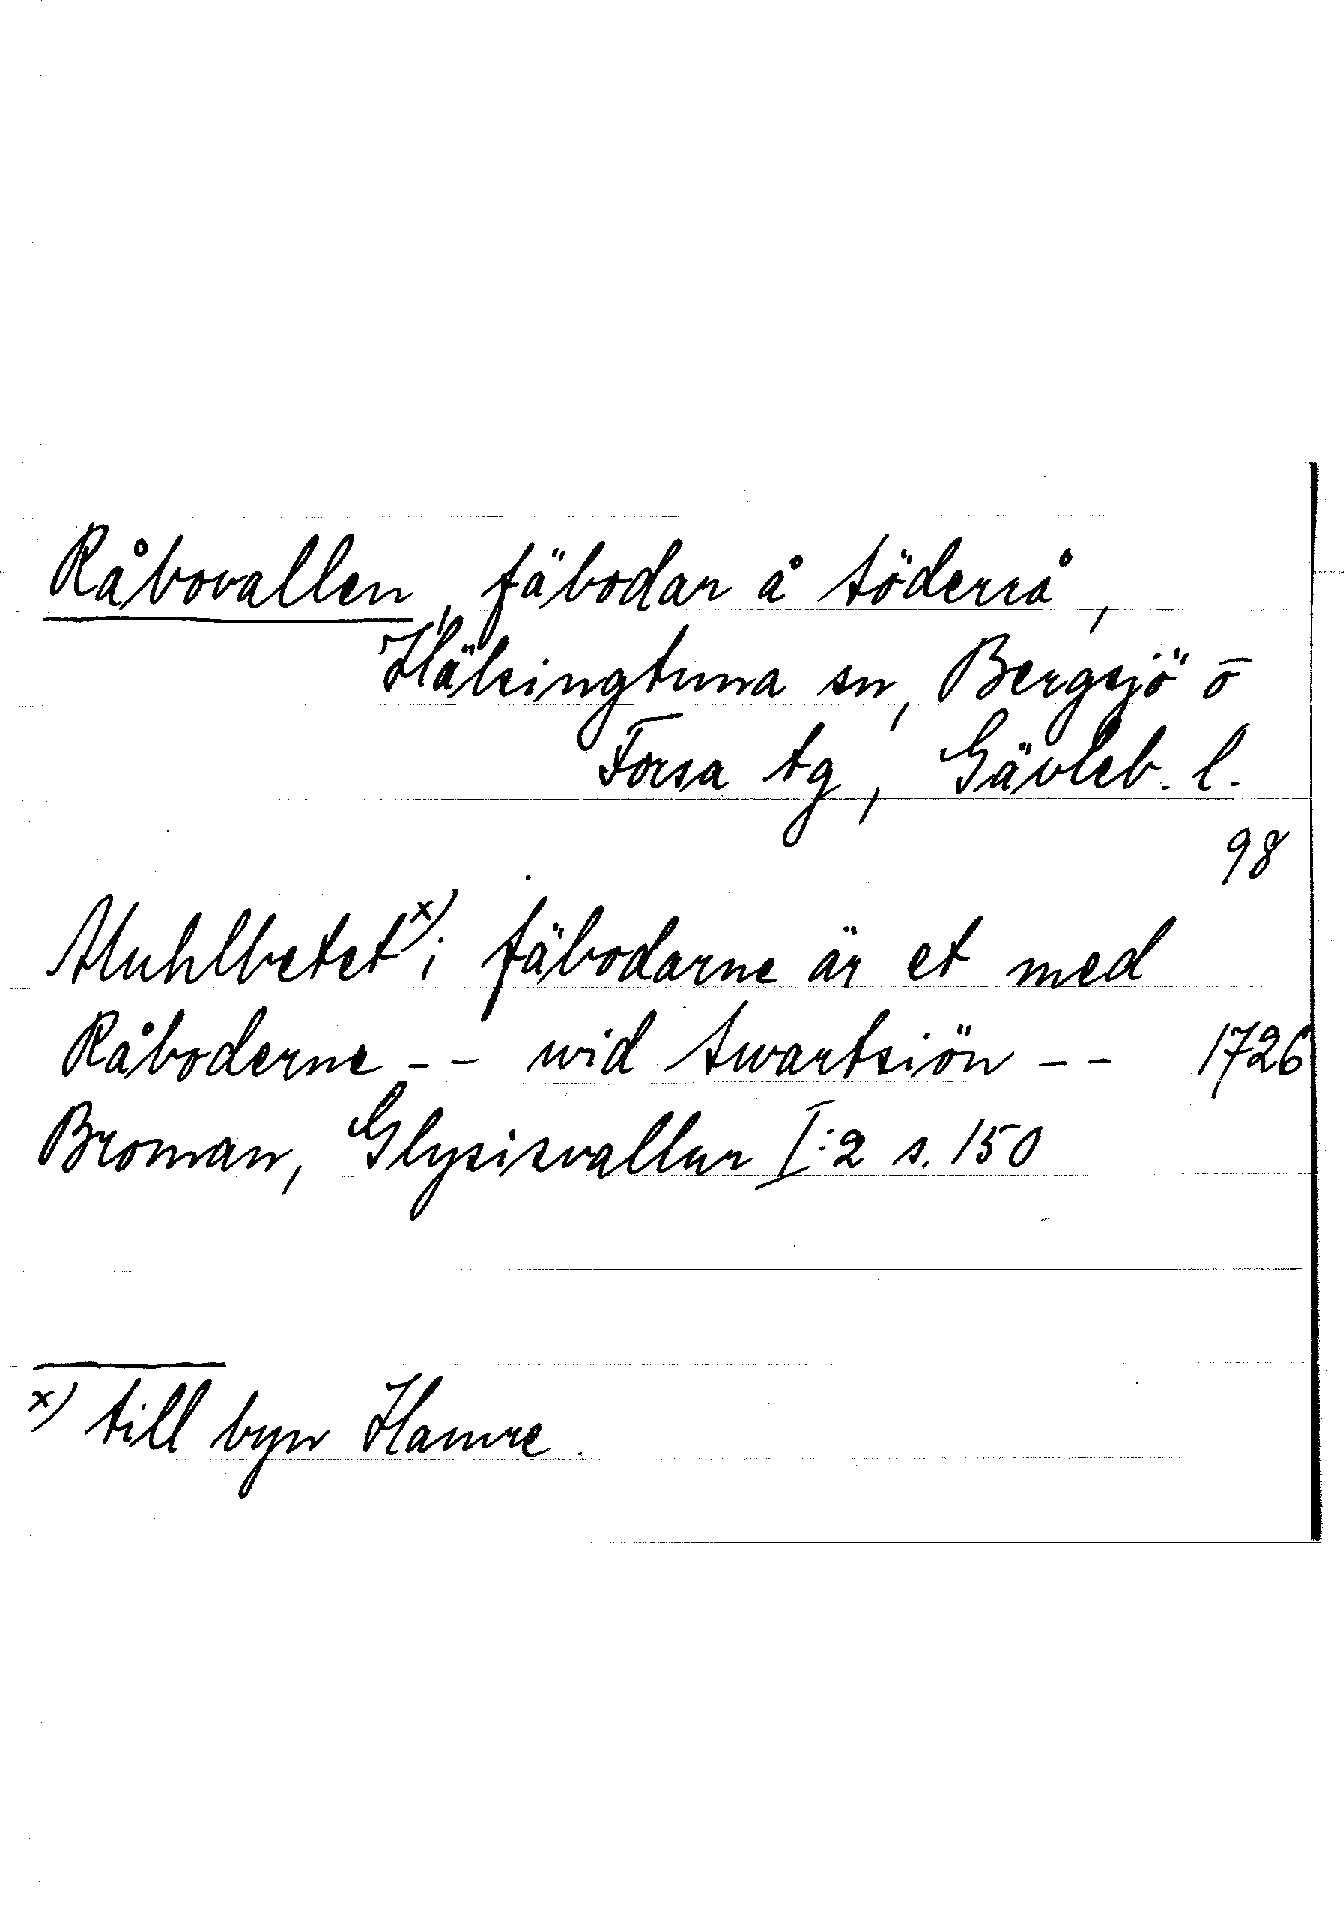 Råbovallen, fäbodar å Söderrå,
Hälsingtuna sn, Bergsjö o
Forsa tg, Gävleb. l.
98
Muhlbetet x) i fäbodarne är et med
Råboderne -- wid Swartsiön -- 1726
Broman, Glysisvallur I:2 s. 150
x) till byn Hamre.